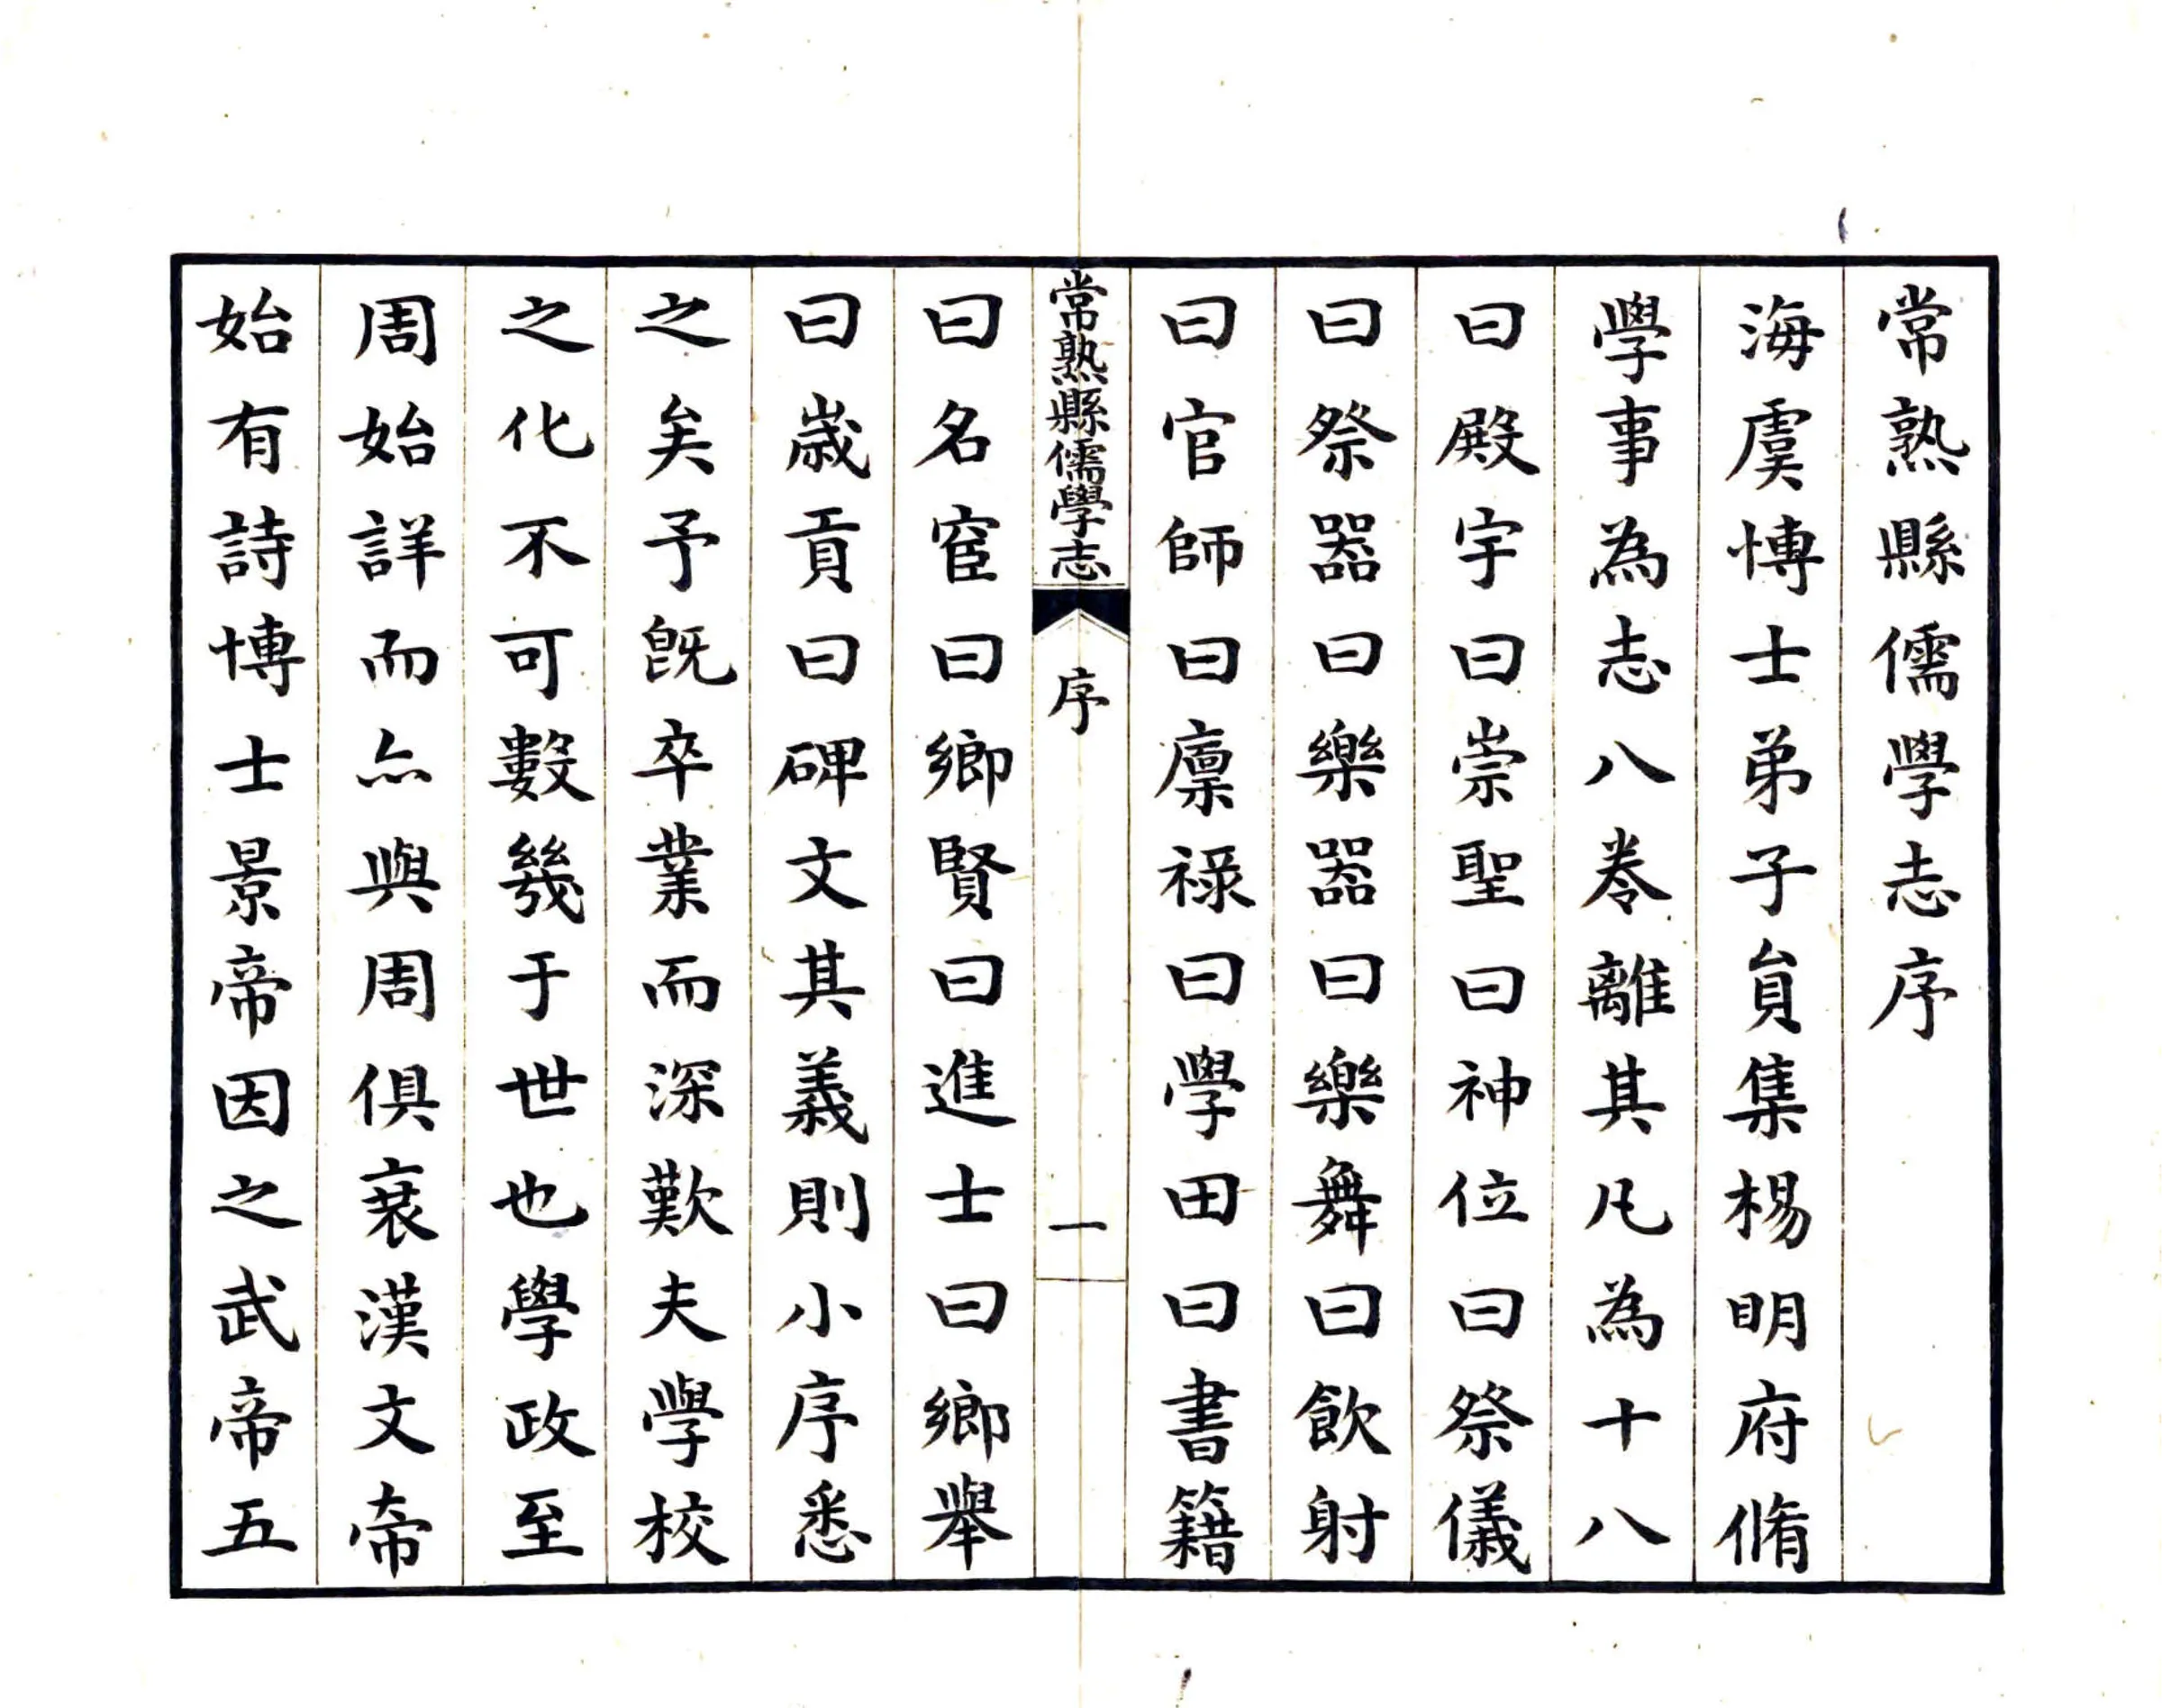 常熟縣儒學志序
海虞博士弟子員集楊明府脩
學事為志八卷離其凡為十八
曰殿宇曰崇聖曰神位曰祭儀
曰祭器曰樂器曰樂舞曰飲射
曰官師曰廩祿曰學田曰書籍
常熟縣儒學志
序
一
曰名宦曰鄉賢曰進士曰鄉舉
曰歲貢曰碑文其義則小序悉
之矣予既卒業而深歎夫學校
之化不可數幾于世也學政至
周始詳而亦與周俱衰漢文帝
始有詩博士景帝因之武帝五